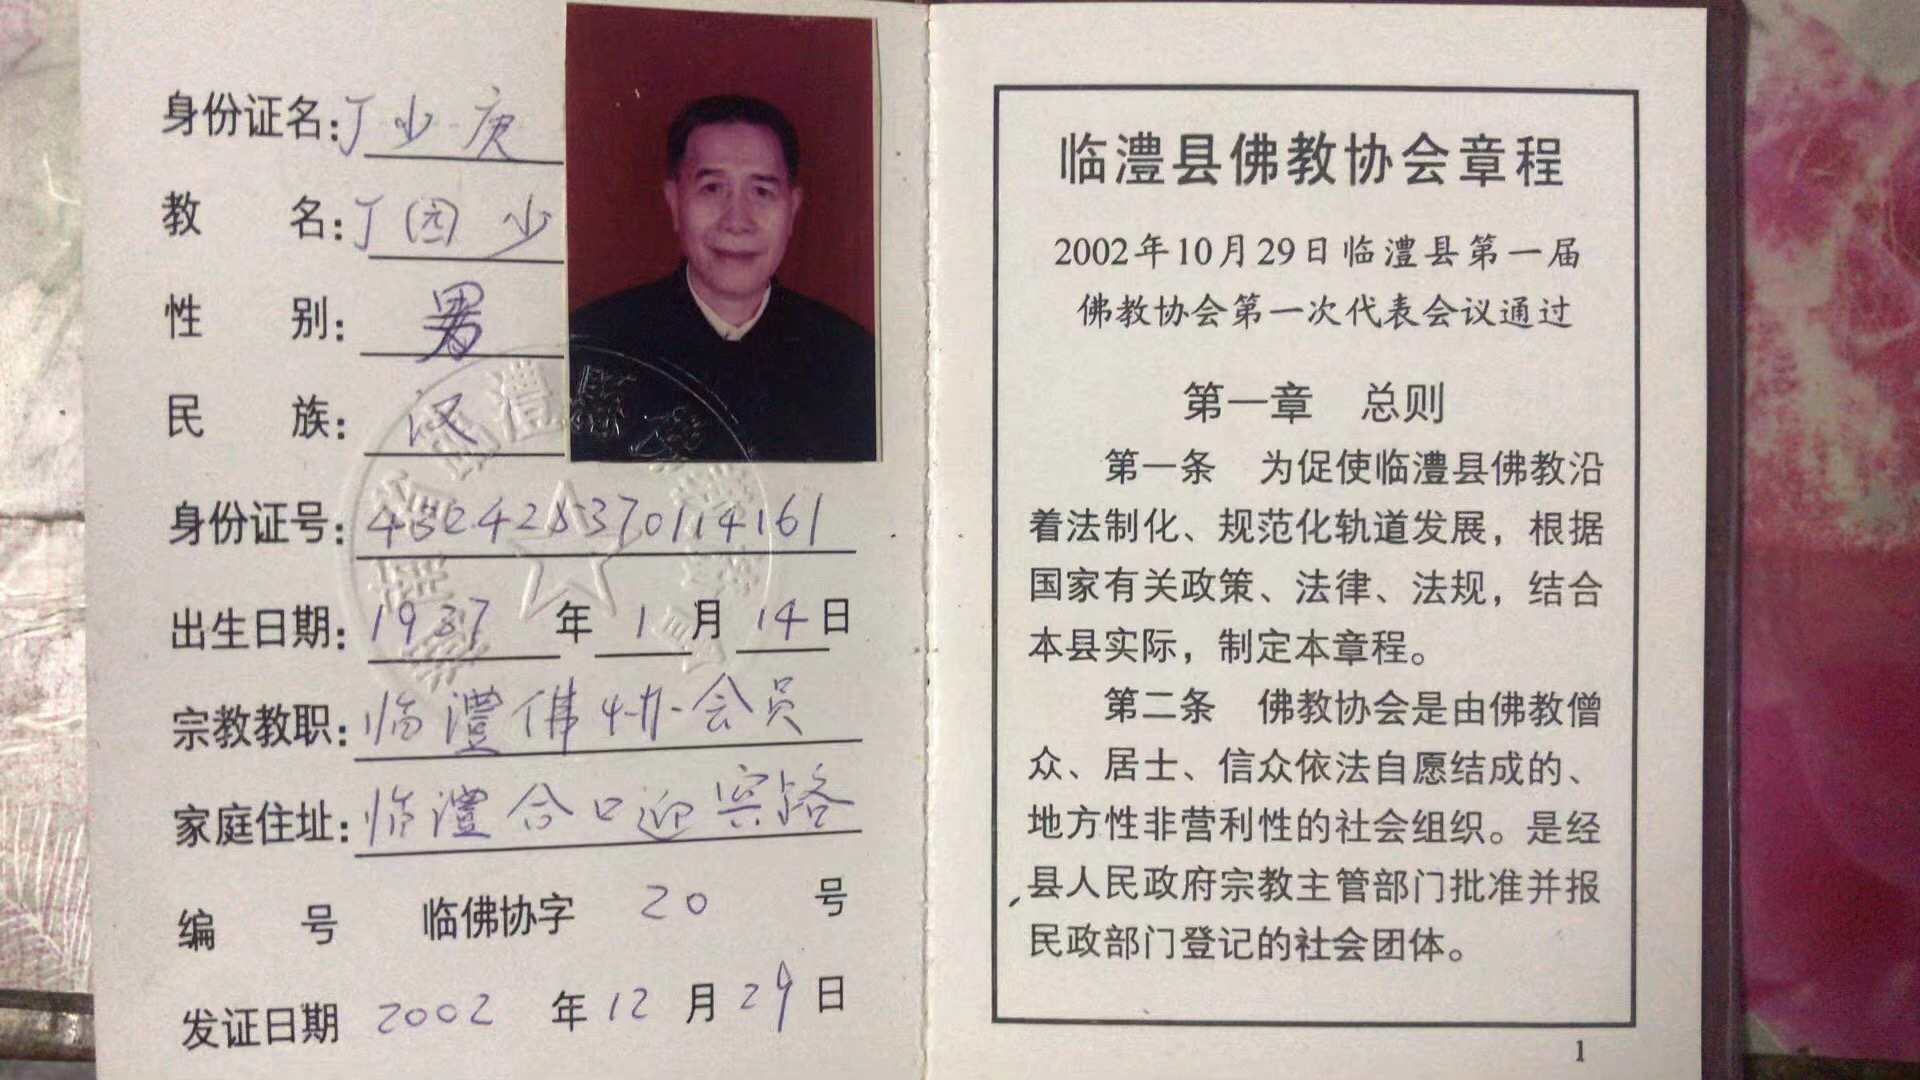 身份证名:丁少庚
教 名:丁园少
性 别:男
民 族:汉
身份证号:432428370114161
出生日期:1937年1月14日
宗教教职:临澧佛协会员
家庭住址:临澧合口迎宾路
编 号 临佛协字 20 号
发证日期 2002 年 12 月 29 日
临澧县佛教协会章程
2002年10月29日临澧县第一届
佛教协会第一次代表会议通过
第一章 总则
第一条 为促使临澧县佛教沿
着法制化、规范化轨道发展，根据
国家有关政策、法律、法规，结合
本县实际，制定本章程。
第二条 佛教协会是由佛教僧
众、居士、信众依法自愿结成的、
地方性非营利性的社会组织。是经
县人民政府宗教主管部门批准并报
民政部门登记的社会团体。
1